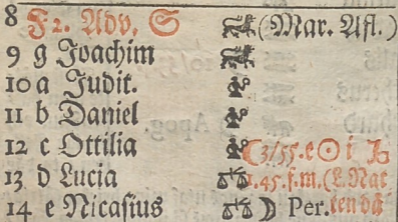 8 F 2. Adv. S (Mar. Afl.)
9 g Joachim
10 a Judit.
11 b Daniel
12 c Ottilia 3/55. e ☉ i
13 d Lucia 1.45. f. m. (L. Nat
14 e Nicasius ☽ Per. ten då